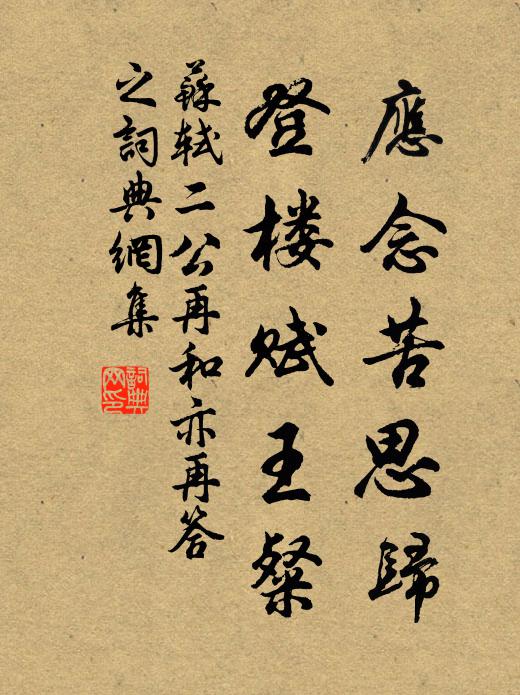 應念苦思歸
登楼賦王粲
蘇軾二公再和亦再答
之詞典網集
詞典网印